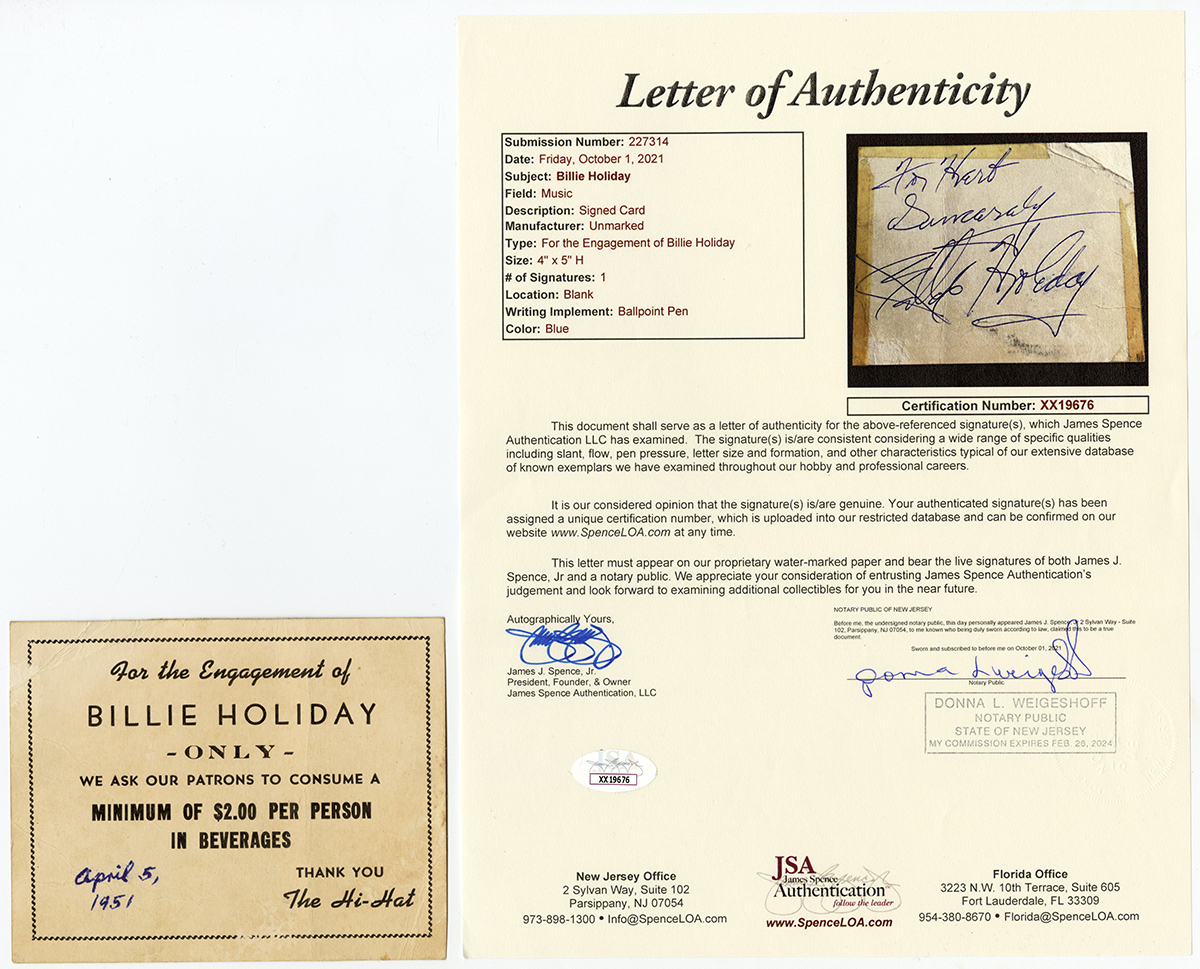 Letter of Authenticity
Submission Number: 227314
Date: Friday, October 1, 2021
Subject: Billie Holiday
Field: Music
Description: Signed Card
Manufacturer: Unmarked
Type: For the Engagement of Billie Holiday
Size: 4" x 5" H
# of Signatures: 1
Location: Blank
Writing Implement: Ballpoint Pen
Color: Blue
For Hart
Sincerely
Billie Holiday
Certification Number: XX19676
This document shall serve as a letter of authenticity for the above-referenced signature(s), which James Spence
Authentication LLC has examined. The signature(s) is/are consistent considering a wide range of specific qualities
including slant, flow, pen pressure, letter size and formation, and other characteristics typical of our extensive database
of known exemplars we have examined throughout our hobby and professional careers.
It is our considered opinion that the signature(s) is/are genuine. Your authenticated signature(s) has been
assigned a unique certification number, which is uploaded into our restricted database and can be confirmed on our
website www.SpenceLOA.com at any time.
This letter must appear on our proprietary water-marked paper and bear the live signatures of both James J.
Spence, Jr and a notary public. We appreciate your consideration of entrusting James Spence Authentication's
judgement and look forward to examining additional collectibles for you in the near future.
Autographically Yours,
James J. Spence, Jr.
President, Founder, & Owner
James Spence Authentication, LLC
NOTARY PUBLIC OF NEW JERSEY
Before me, the undersigned notary public, this day personally appeared James J. Spence, Jr 2 Sylvan Way - Suite
102, Parsippany, NJ 07054, to me known who being duly sworn according to law, claimed this to be a true
document.
Sworn and subscribed to before me on October 01, 2021
Donna L Weigeshoff
Notary Public
DONNA L. WEIGESHOFF
NOTARY PUBLIC
STATE OF NEW JERSEY
MY COMMISSION EXPIRES FEB. 26, 2024
XX19676
New Jersey Office
2 Sylvan Way, Suite 102
Parsippany, NJ 07054
973-898-1300 • Info@SpenceLOA.com
JSA
James Spence
Authentication
follow the leader
www.SpenceLOA.com
Florida Office
3223 N.W. 10th Terrace, Suite 605
Fort Lauderdale, FL 33309
954-380-8670 • Florida@SpenceLOA.com
For the Engagement of
BILLIE HOLIDAY
- ONLY -
WE ASK OUR PATRONS TO CONSUME A
MINIMUM OF $2.00 PER PERSON
IN BEVERAGES
April 5,
1951
THANK YOU
The Hi-Hat